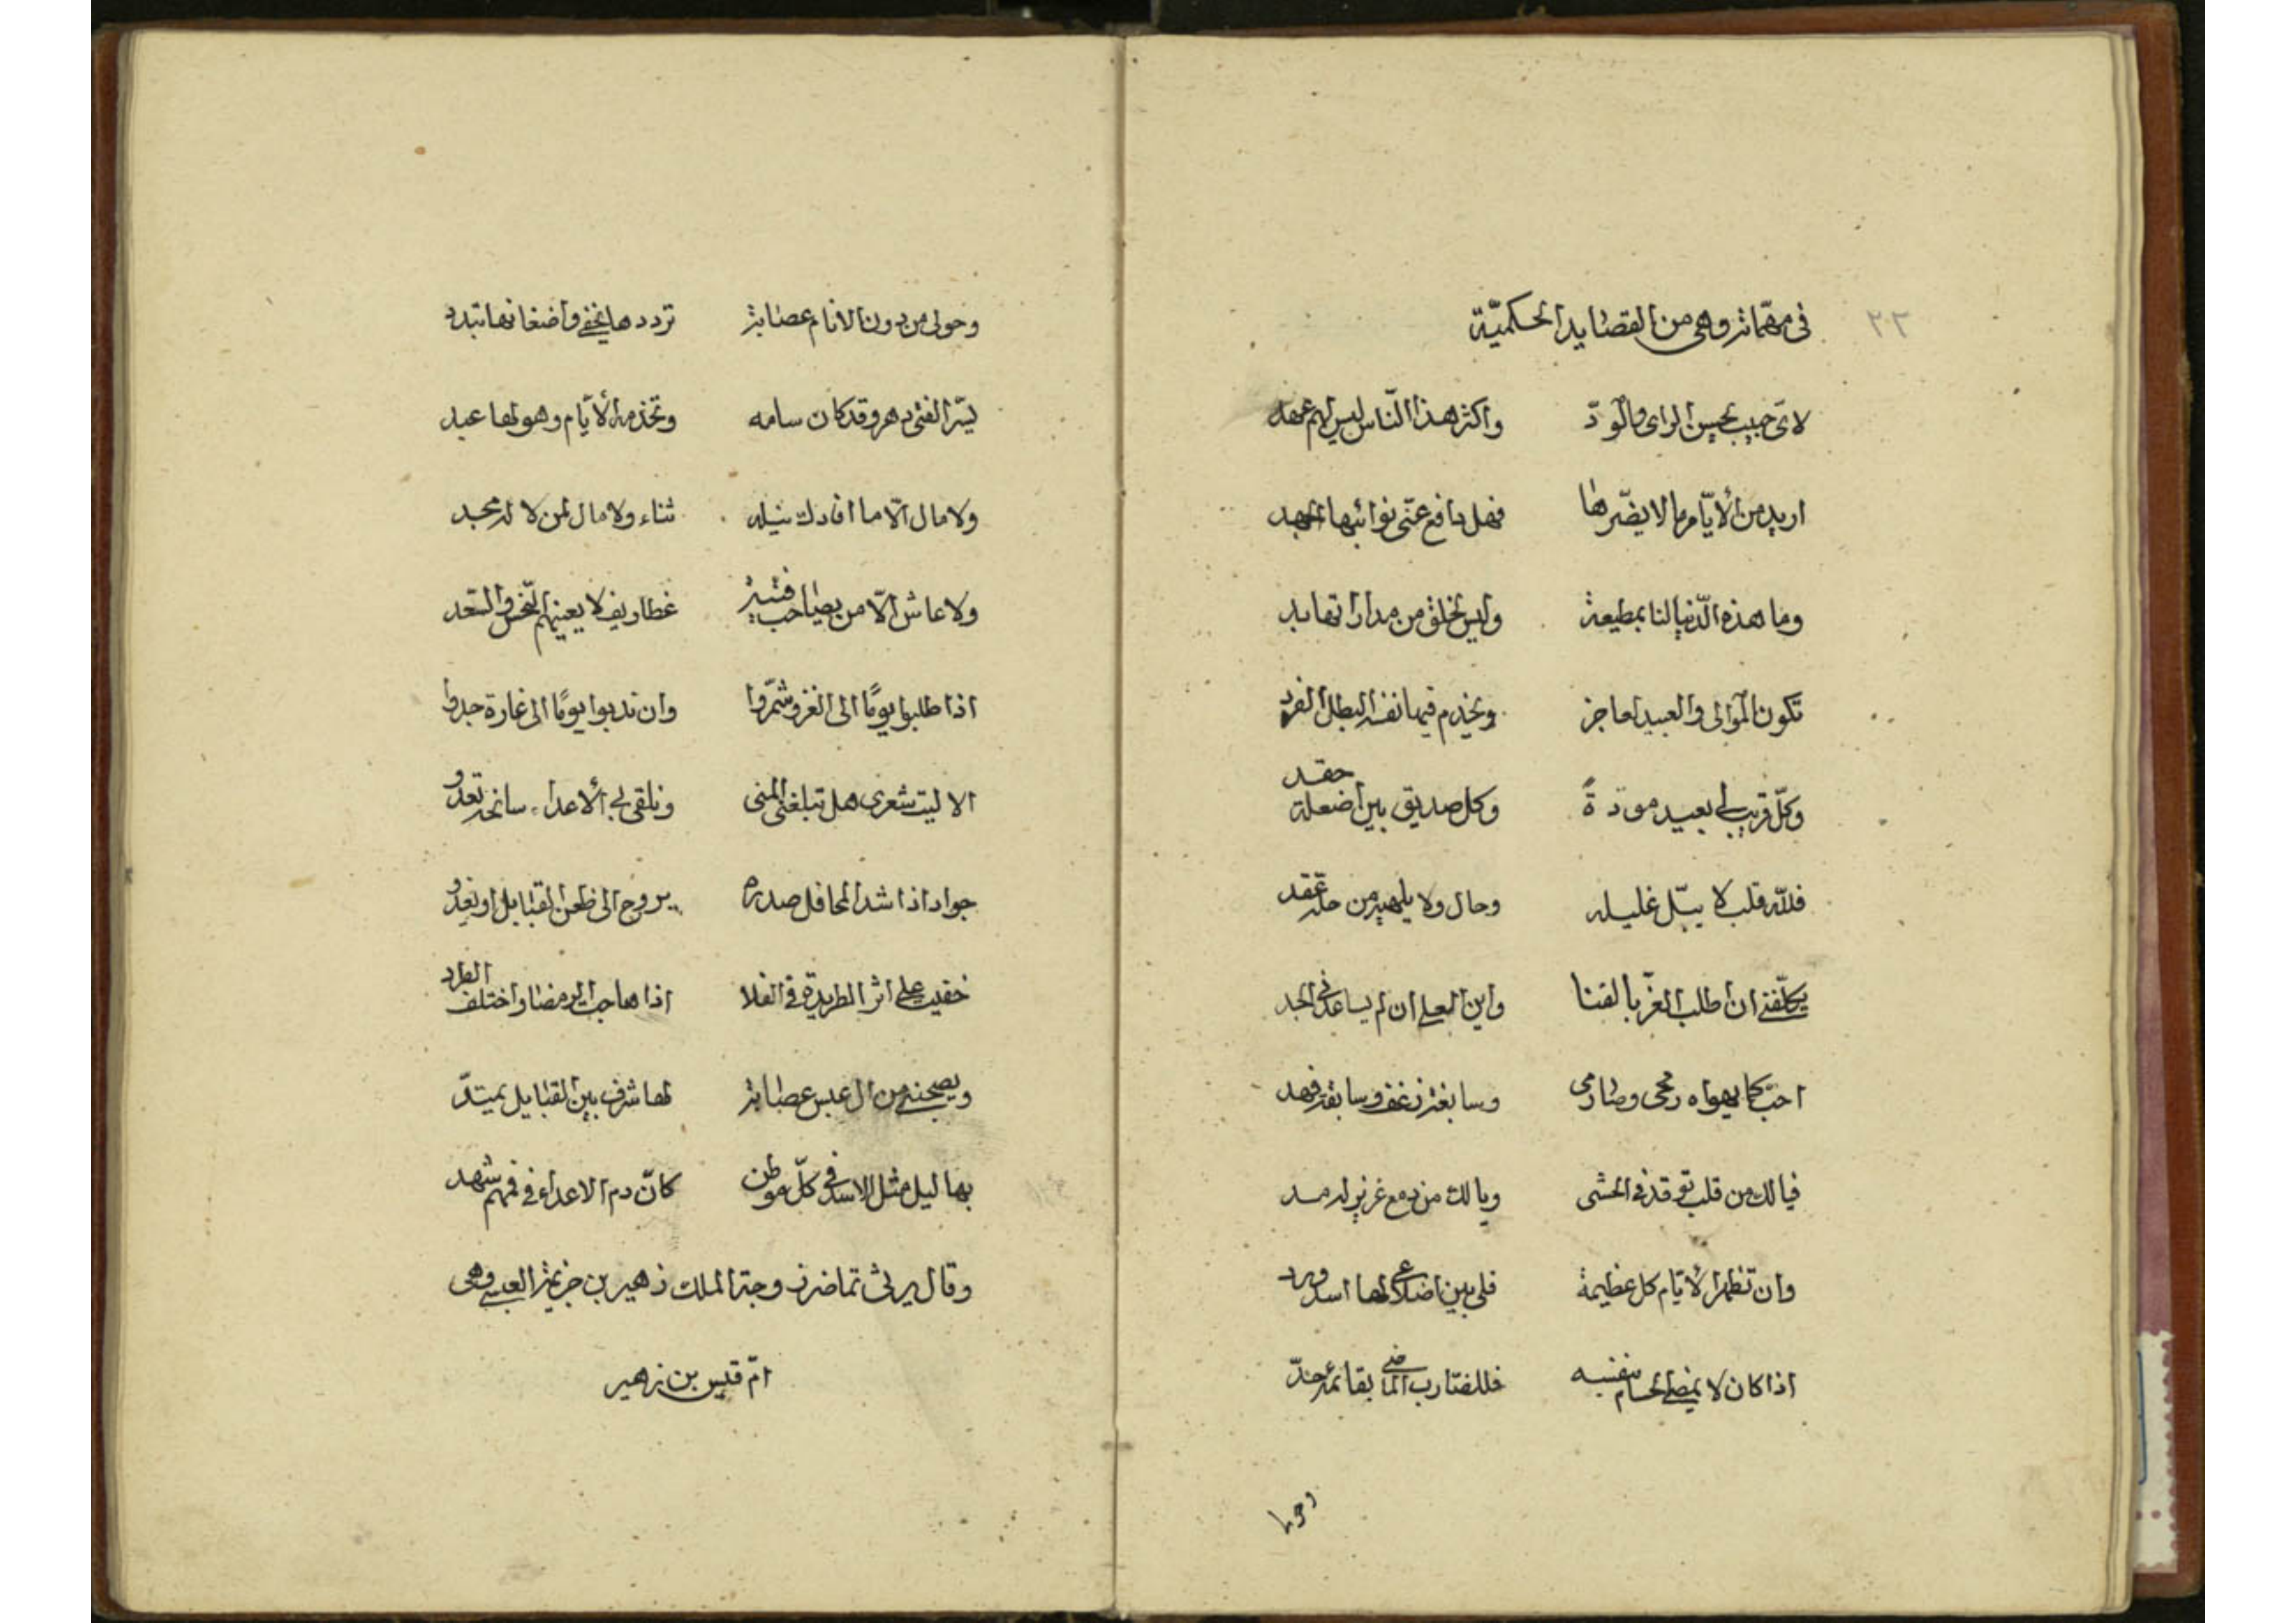 ٢٢
في مهماته وهي من القصايد الحكميّة
لايّ حبيب يحسن الراى والودّ واكثر هذا النّاس ليس لهم عهد
اريد من الأيّام ما لا يضّرها فهل دافع عنّى نوائبها الجهد
وما هذه الدّنيا لنا بمطيعة وليس لخلق من مداراتها بد
تكون الموالى والعبيد لعاجز ويخدم فيها نفسه البطل الفرد
وكلّ قريب لى بعيد مودةً وكل صديق بين اضعله حقد
فللّه قلب لا يبّل غليله وحال ولا يلهيه من حله عقد
يكلّفنى ان اطلب العزّ بالقنا واين العلى ان لم يساعدنى الجد
احبّ كما يهواه رمحى وصارمى وسابغة زغف وسابقة نهد
فيا لك من قلب توقد فى الحشى ويا لك من دمع غزير له مد
وان تظهر الأيّام كل عظيمة فلى بين اضلاعى لها اسد ورد
اذا كان لا يمضى الحسام بنفسه فللضارب الماضى بقائمه حدّ
وحولى
وحولى من دون الانام عصابة توددها يخفى واضغانها تبدو
يسّر الفتى دهر وقد كان سامه وتخدمه الأيّام وهو لها عبد
ولا مال الّا ما افادك نيله ثناء ولا مال لمن لا له مجد
ولا عاش الّا من يصاحب فتية غطاريف لا يعنيهم النّحس والسّعد
اذا طلبوا يومًا الى الغزو شمّروا وان ندبوا يومًا الى غارة جدوا
الا ليت شعرى هل تبلغنى المنى وتلقى بى الأعداء سابحة تعدو
جواد اذا شد المحافل صدره يروح الى ظعن القبايل او يغدو
خفيت على اثر الطريدة فى الفلا اذا هاجت الرمضا واختلف الطرد
ويصحبنى من ال عبس عصابة لها شرف بين القبايل يمتدّ
بهاليل مثل الاسد فى كلّ موطن كانّ دم الاعداء فى فمهم شهد
وقال يرثى تماضر زوجة الملك زهير بن جزيمة العبسى وهى
امّ قيس بن زهير